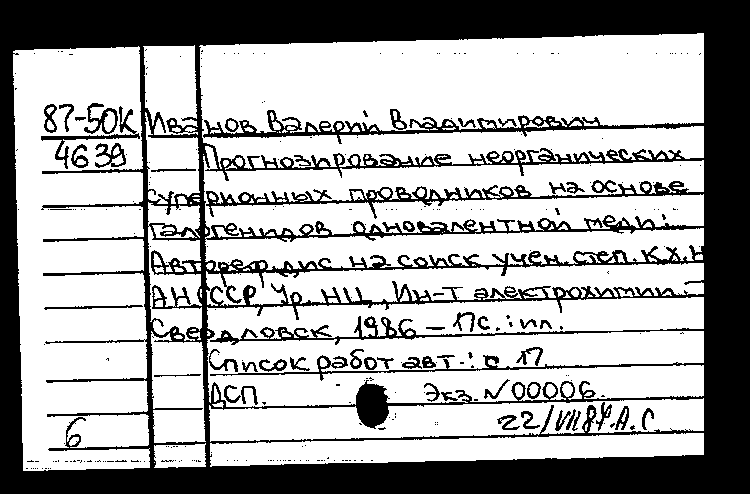 87-50К Иванов Валерий Владимирович
4639 Прогнозирование неорганических
суперионных проводников на основе
галогенидов одновалентной меди:
Автореф. дис. на соиск. учен. степ. к.х.н
АН СССР, Ур. НЦ, Ин-т электрохимии. –
Свердловск, 1986 – 17с.: ил.
Список работ авт.: с 17
ДСП. Экз. №00006.
6 22/VII87. А.С.